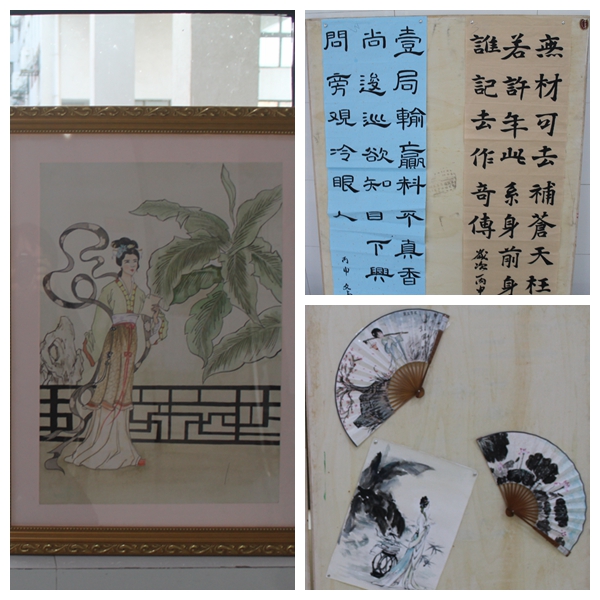 無材可去補蒼天枉
若許年此系身前身
誰記去作奇傳
歲次丙申
壹局輸贏料不真香
尚逡巡欲知目下興
問旁觀冷眼人
丙申